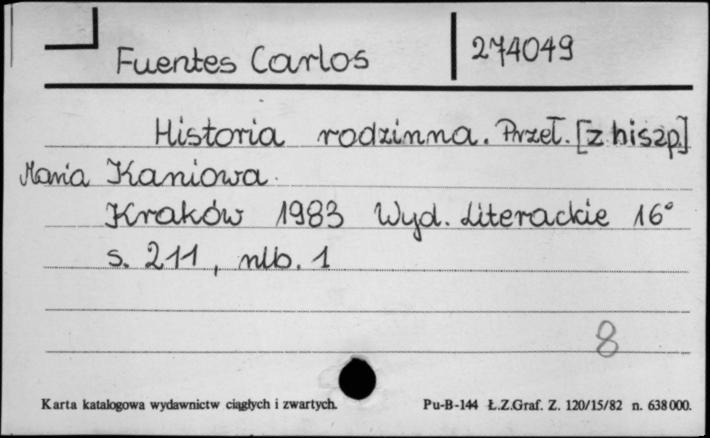 Fuentes Carlos 274049
Historia rodzinna. Przeł. [z hiszp.]
Maria Kaniowa.
Kraków 1983 Wyd. Literackie 16°
s. 211, nlb. 1
8
Karta katalogowa wydawnictw ciągłych i zwartych. Pu-B-144 Ł.Z.Graf. Z. 120/15/82 n. 638000.